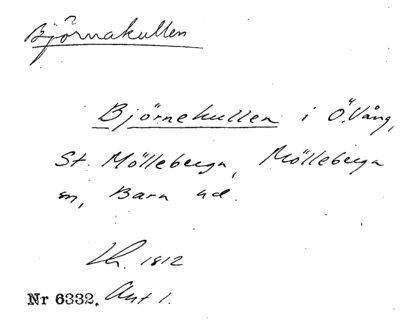 Björnakullen
Björnekullen i Ö. Vång,
St. Mölleberga, Mölleberga
sn, Bara hd.
Lh. 1812
Nr 6332. Akt 1.